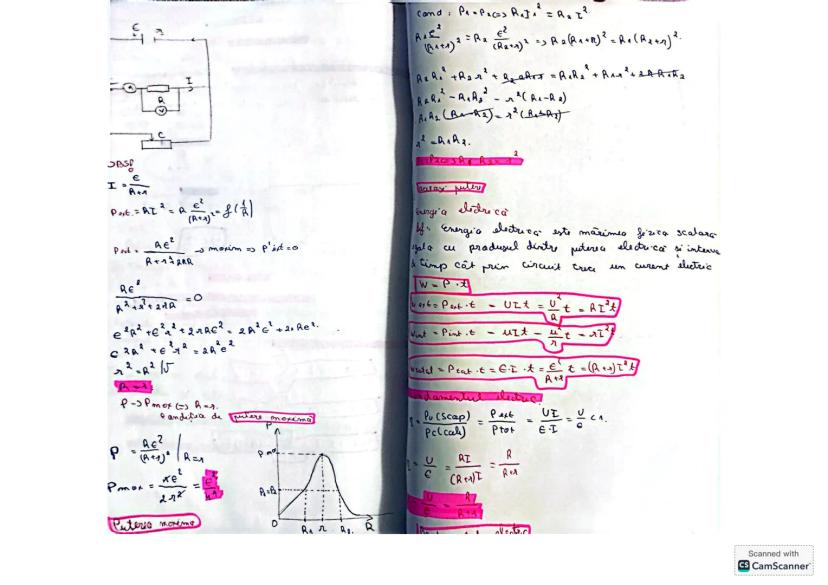 ε
r
A
I
R
V
C
OBS:
I = ε/(R+r)
Pext. = RI² = R ε²/(R+r)² = f(1/R)
Pext = Rε²/(R²+r²+2rR) → maxim ⇒ P'ext = 0
Rε²/(R²+r²+2rR) = 0
ε²R² + ε²r² + 2rRε² = 2R²ε² + 2rRε².
ε²R² + ε²r² = 2R²ε²
r² = R² |√
R = r
P → Pmax ⇔ R = r.
Condiția de putere maximă
P = Rε²/(R+r)² | R=r
Pmax = rε²/2r² = ε²/4r
Puterea maximă
P
Pmax
P1=P2
0
R1
r
R2
R
Cond: P1 = P2 ⇔ R1I1² = R2I².
R1 ε²/(R1+r)² = R2 ε²/(R2+r)² ⇒ R2(R1+r)² = R1(R2+r)².
R2R1² + R2r² + = R1R2² + R1r² +
R2R1² - R1R2² = r²(R1-R2)
R1R2(R1-R2) = r²(R1-R2)
r² = R1R2.
putere
Energia electrică
Def: Energia electrică este mărimea fizică scalară
egală cu produsul dintre puterea electrică și interva
de timp cât prin circuit trece un curent electric
W = P · t
Wext = Pext · t = UIt = U²/R t = RI²t
Wint = Pint · t = uIt = u²/r t = rI²t
Wtotal = Ptot · t = ε·I·t = ε²/(R+r) t = (R+r)I²t
Randamentul electric:
η = Pu(scap)/Pc(cals) = Pext/Ptot = UI/ε·I = U/ε < 1.
η = U/ε = RI/(R+r)I = R/(R+r)
U/ε = R/(R+r)
Scanned with
CS CamScanner